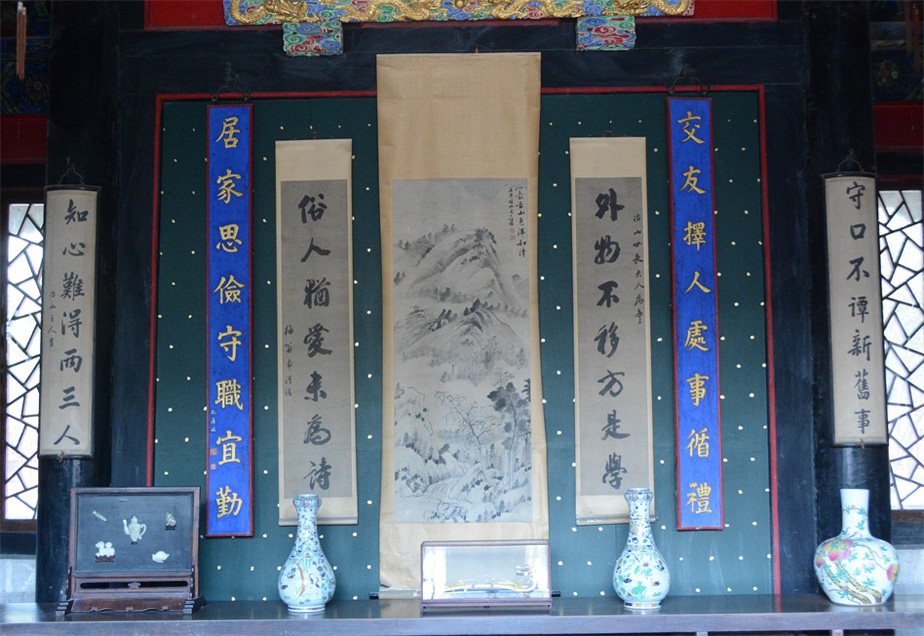 守口不谭新舊事
交友擇人處事循禮
外物不移方是學
俗人犹爱未為詩
居家思儉守職宜勤
知心難得兩三人